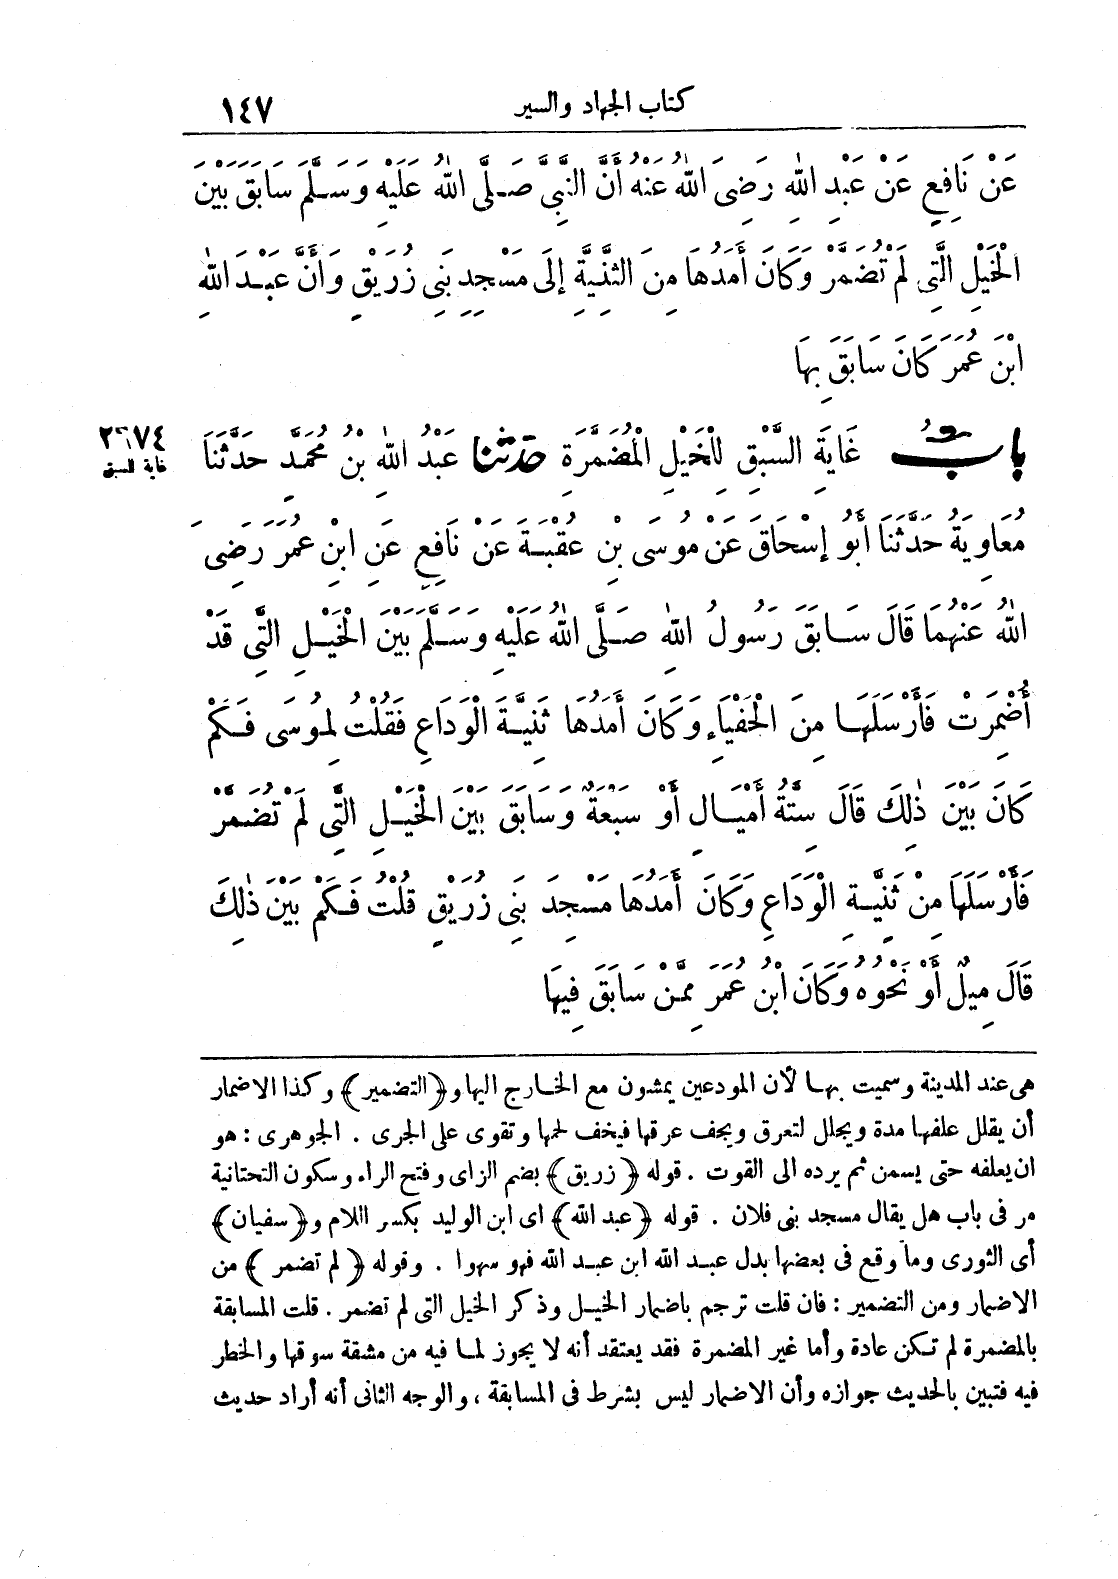 كتاب الجهاد والسير ١٤٧
عَنْ نَافِعٍ عَنْ عَبْدِ اللهِ رَضِىَ اللهُ عَنْهُ أَنَّ النَّبِىَّ صَلَّى اللهُ عَلَيْهِ وَسَلَّمَ سَابَقَ بَيْنَ
الْخَيْلِ الَّتِى لَمْ تُضَمَّرْ وَكَانَ أَمَدُهَا مِنَ الثَّنِيَّةِ إِلَى مَسْجِدِ بَنِى زُرَيْقٍ وَأَنَّ عَبْدَ اللهِ
ابْنَ عُمَرَ كَانَ سَابَقَ بِهَا
بَابُ غَايَةِ السَّبْقِ لِلْخَيْلِ الْمُضَمَّرَةِ حدثنا عَبْدُ اللهِ بْنُ مُحَمَّدٍ حَدَّثَنَا
٢٦٧٤
غاية السبق
مُعَاوِيَةُ حَدَّثَنَا أَبُو إِسْحَاقَ عَنْ مُوسَى بْنِ عُقْبَةَ عَنْ نَافِعٍ عَنِ ابْنِ عُمَرَ رَضِىَ
اللهُ عَنْهُمَا قَالَ سَابَقَ رَسُولُ اللهِ صَلَّى اللهُ عَلَيْهِ وَسَلَّمَ بَيْنَ الْخَيْلِ الَّتِى قَدْ
أُضْمِرَتْ فَأَرْسَلَهَا مِنَ الْحَفْيَاءِ وَكَانَ أَمَدُهَا ثَنِيَّةَ الْوَدَاعِ فَقُلْتُ لِمُوسَى فَكَمْ
كَانَ بَيْنَ ذٰلِكَ قَالَ سِتَّةُ أَمْيَالٍ أَوْ سَبْعَةٌ وَسَابَقَ بَيْنَ الْخَيْلِ الَّتِى لَمْ تُضَمَّرْ
فَأَرْسَلَهَا مِنْ ثَنِيَّةِ الْوَدَاعِ وَكَانَ أَمَدُهَا مَسْجِدَ بَنِى زُرَيْقٍ قُلْتُ فَكَمْ بَيْنَ ذٰلِكَ
قَالَ مِيلٌ أَوْ نَحْوُهُ وَكَانَ ابْنُ عُمَرَ مِمَّنْ سَابَقَ فِيهَا
هى عند المدينة وسميت بها لأن المودعين يمشون مع الخارج اليها و﴿التضمير﴾ وكذا الاضمار
أن يقلل علفها مدة ويجلل لتعرق ويجف عرقها فيخف لحمها وتقوى على الجرى . الجوهرى : هو
ان يعلفه حتى يسمن ثم يرده الى القوت . قوله ﴿زريق﴾ بضم الزاى وفتح الراء وسكون التحتانية
مر فى باب هل يقال مسجد بنى فلان . قوله ﴿عبد الله﴾ اى ابن الوليد بكسر اللام و﴿سفيان﴾
أى الثورى وما وقع فى بعضها بدل عبد الله ابن عبد الله فهو سهوا . وقوله ﴿لم تضمر﴾ من
الاضمار ومن التضمير : فان قلت ترجم باضمار الخيل وذكر الخيل التى لم تضمر . قلت المسابقة
بالمضمرة لم تكن عادة وأما غير المضمرة فقد يعتقد أنه لا يجوز لما فيه من مشقة سوقها والخطر
فيه فتبين بالحديث جوازه وأن الاضمار ليس بشرط فى المسابقة ، والوجه الثانى أنه أراد حديث